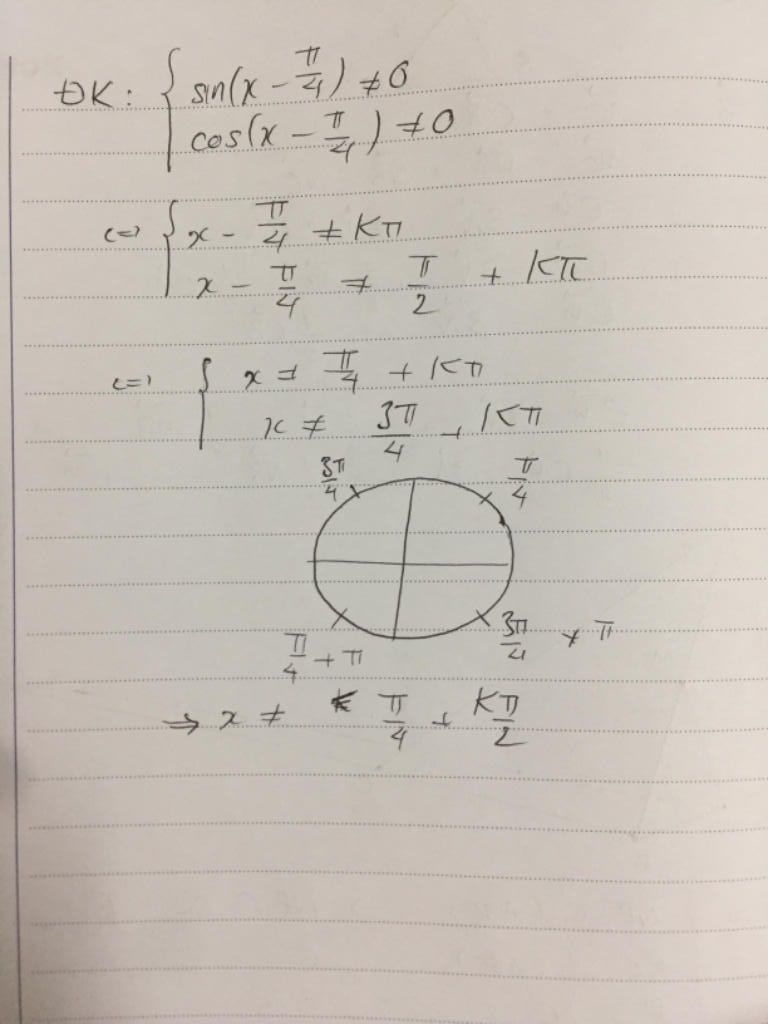 ĐK: { sin(x - π/4) ≠ 0
cos(x - π/4) ≠ 0
<=> { x - π/4 ≠ Kπ
x - π/4 ≠ π/2 + Kπ
<=> { x ≠ π/4 + Kπ
x ≠ 3π/4 + Kπ
3π/4 π/4
π/4 + π 3π/4 + π
⇒ x ≠ π/4 + Kπ/2